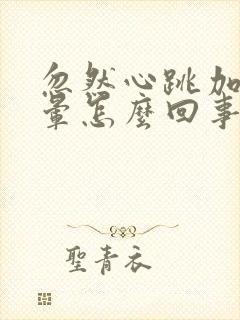 忽然心跳加
暈怎麼回事
聖青衣